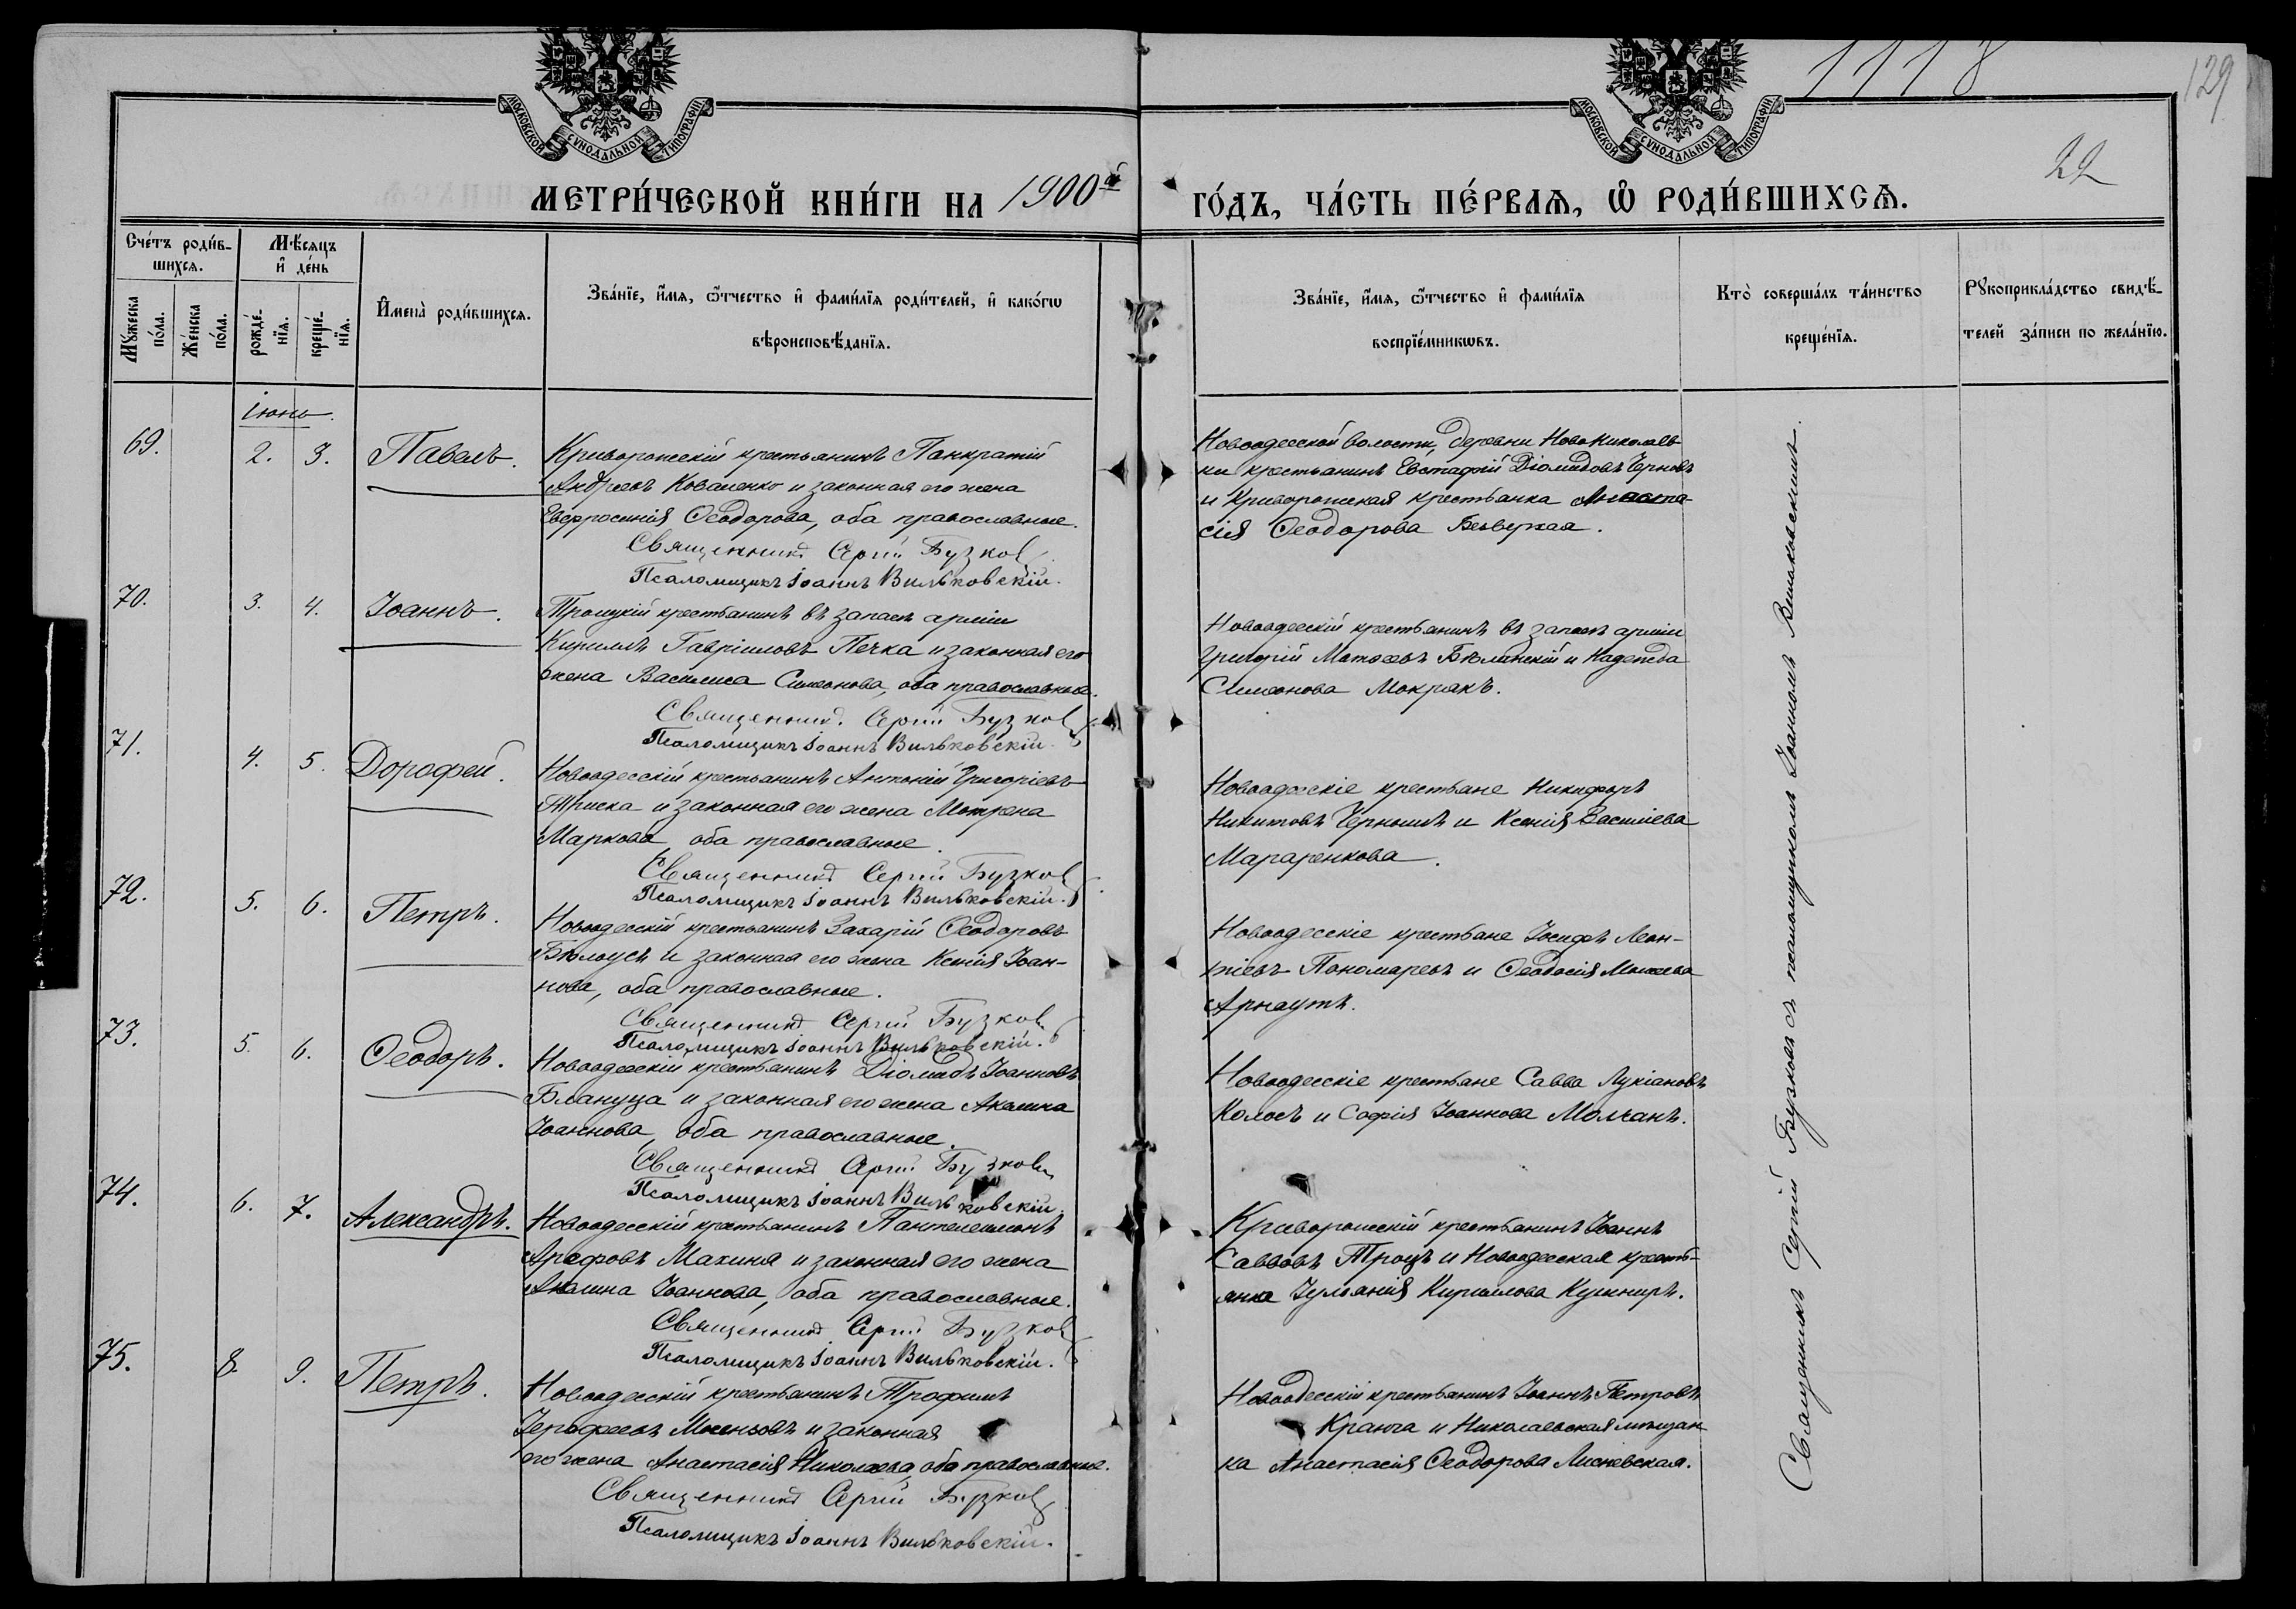 1118
129
22
МОСКОВСКОЙ СѴНОДАЛЬНОЙ ТИПОГРАФІИ
МОСКОВСКОЙ СѴНОДАЛЬНОЙ ТИПОГРАФІИ
МЕТРИ́ЧЕСКОЙ КНИ́ГИ НА 1900й ГО́ДЪ, ЧА́СТЬ ПЕ́РВАѦ, Ѡ РОДИ́ВШИХСѦ.
Сче́тъ роди́в-
шихсѧ.
Мꙋ́жеска по́ла.
Же́нска по́ла.
Мѣ́сѧцъ
и҆ де́нь
рожде́-
нїѧ.
креще́-
нїѧ.
И҆мена̀ роди́вшихсѧ.
Зва́нїе, и҆́мѧ, ѻ҆́тчество и҆ фами́лїѧ роди́телей, и҆ како́гѡ
вѣроисповѣ́данїѧ.
Зва́нїе, и҆́мѧ, ѻ҆́тчество и҆ фами́лїѧ
воспрїе́мникѡвъ.
Кто̀ соверша́лъ та́инство
креще́нїѧ.
Рꙋкоприкла́дство свидѣ́-
телей за́писи по жела́нїю.
Іюнь.
69. 2. 3. Павелъ.
Криворожскій крестьянинъ Панкратій
Андреевъ Коваленко и законная его жена
Евфросинія Ѳеодорова, оба православные.
Священникъ Сергій Бузковъ
Псаломщикъ Іоаннъ Вильковскій.
Новоодесской волости, деревни Новониколаев-
ки крестьянинъ Евстафій Діомидовъ Черновъ
и Криворожская крестьянка Анаста-
сія Ѳеодорова Безверхая.
70. 3. 4. Іоаннъ.
Троицкій крестьянинъ въ запасѣ арміи
Кириллъ Гавріиловъ Печка и законная его
жена Василиса Симеонова, оба православные.
Священникъ Сергій Бузковъ
Псаломщикъ Іоаннъ Вильковскій.
Новоодесскій крестьянинъ въ запасѣ арміи
Григорій Матѳеевъ Бѣлинскій и Надежда
Симеонова Мокрякъ.
71. 4. 5. Дорофей.
Новоодесскій крестьянинъ Антоній Григоріевъ
Триска и законная его жена Мотрена
Маркова, оба православные.
Священникъ Сергій Бузковъ
Псаломщикъ Іоаннъ Вильковскій.
Новоодесскіе крестьяне Никифоръ
Никитовъ Чернышъ и Ксенія Василіева
Мараренкова.
72. 5. 6. Петръ.
Новоодесскій крестьянинъ Захарій Ѳеодоровъ
Бѣлоусъ и законная его жена Ксенія Іоан-
нова, оба православные.
Священникъ Сергій Бузковъ
Псаломщикъ Іоаннъ Вильковскій.
Новоодесскіе крестьяне Іосифъ Леон-
тіевъ Пономаревъ и Ѳеодосія Моисеева
Арнаутъ.
73. 5. 6. Ѳеодоръ.
Новоодесскій крестьянинъ Діомидъ Іоанновъ
Блануца и законная его жена Акилина
Іоаннова, оба православные.
Священникъ Сергій Бузковъ
Псаломщикъ Іоаннъ Вильковскій.
Новоодесскіе крестьяне Савва Лукіановъ
Колосъ и Софія Іоаннова Молчанъ.
74. 6. 7. Александръ.
Новоодесскій крестьянинъ Пантелеимонъ
Арефовъ Махиня и законная его жена
Акилина Іоаннова, оба православные.
Священникъ Сергій Бузковъ
Псаломщикъ Іоаннъ Вильковскій.
Криворожскій крестьянинъ Іоаннъ
Саввовъ Троцъ и Новоодесская кресть-
янка Іуліанія Кириллова Кушниръ.
75. 8. 9. Петръ.
Новоодесскій крестьянинъ Трофимъ
Іероѳеевъ и законная
его жена Анастасія Николаева, оба православные.
Священникъ Сергій Бузковъ
Псаломщикъ Іоаннъ Вильковскій.
Новоодесскій крестьянинъ Іоаннъ Петровъ
Кранга и Николаевская мѣщан-
ка Анастасія Ѳеодорова Лисневская.
Священникъ Сергій Бузковъ съ псаломщикомъ Іоанномъ Вильковскимъ.